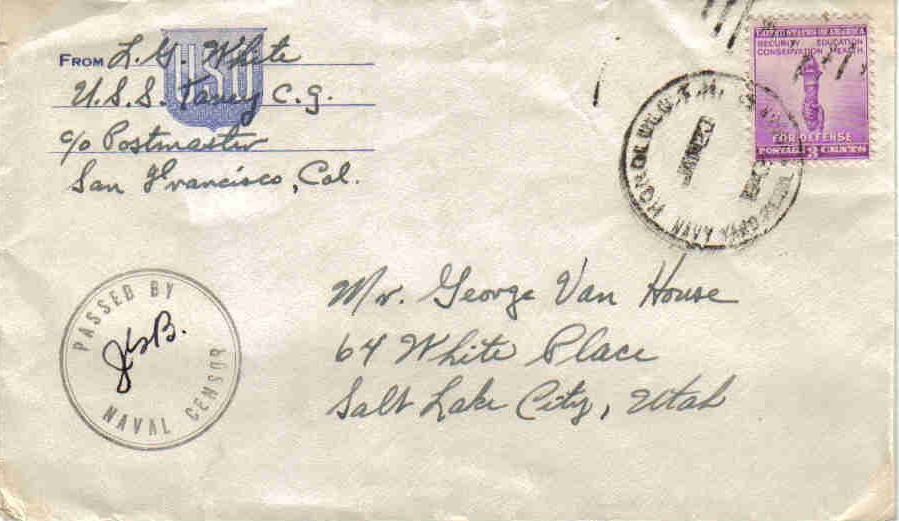 FROM L. G. White
USO
U.S.S. Taney C. G.
c/o Postmaster
San Francisco, Cal.
UNITED STATES OF AMERICA
SECURITY EDUCATION
CONSERVATION HEALTH
FOR DEFENSE
POSTAGE 3 CENTS
HONOLULU, T.H.
NAVY YARD
PASSED BY
NAVAL CENSOR
Mr. George Van House
64 White Place
Salt Lake City, Utah